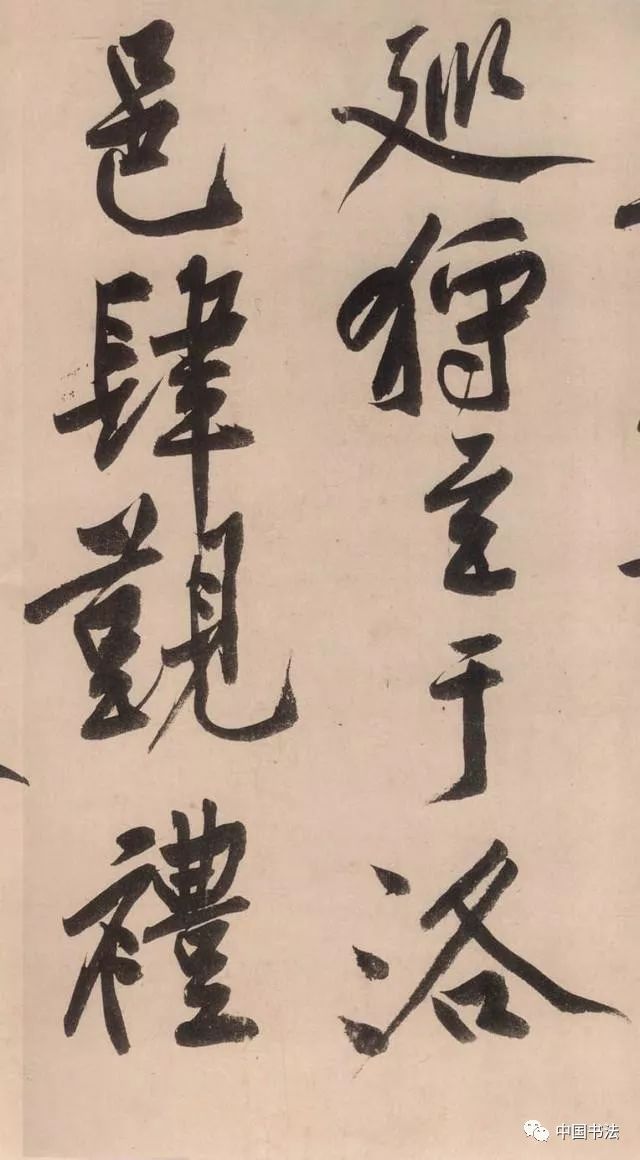 巡狩至于洛
邑肆覲禮
中国书法